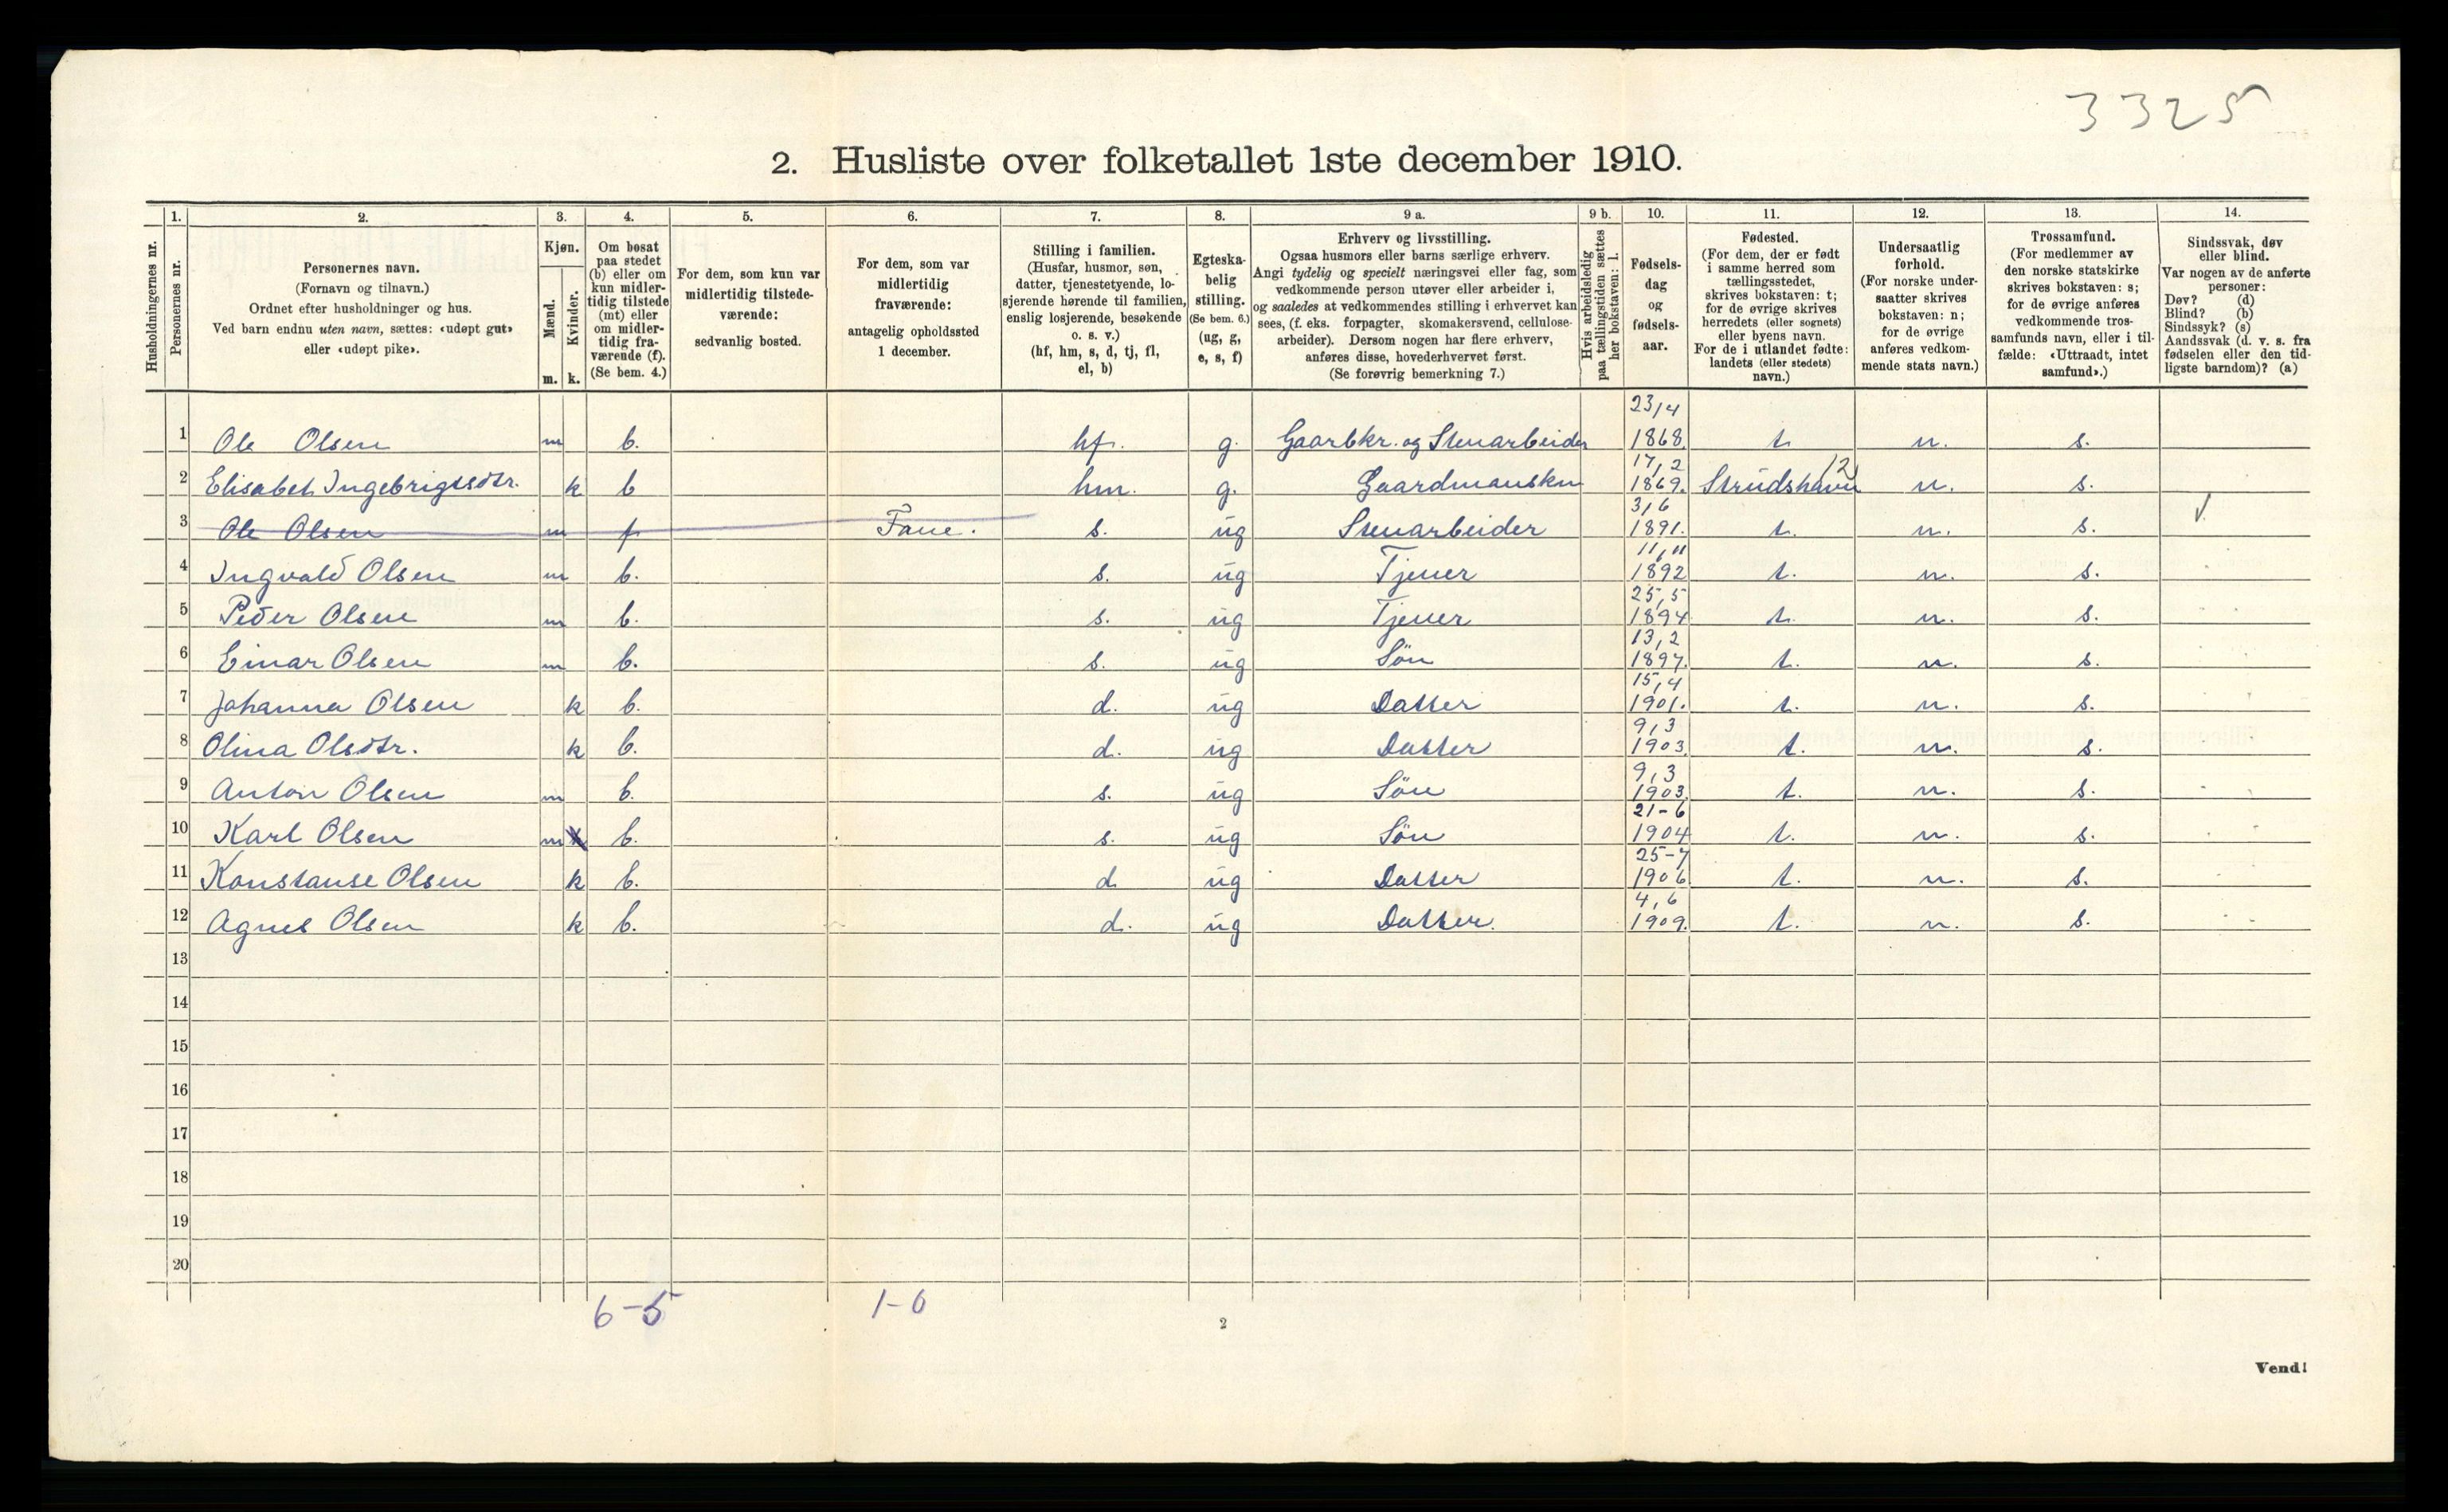 3325
2. Husliste over folketallet 1ste december 1910.
1. 2. 3. 4. 5. 6. 7. 8. 9 a. 9 b. 10. 11. 12. 13. 14.
Husholdningernes nr.
Personernes nr.
Personernes navn.
(Fornavn og tilnavn.)
Ordnet efter husholdninger og hus.
Ved barn endnu uten navn, sættes: «udøpt gut»
eller «udøpt pike».
Kjøn.
Mænd.
Kvinder.
m. k.
Om bosat
paa stedet
(b) eller om
kun midler-
tidig tilstede
(mt) eller
om midler-
tidig fra-
værende (f).
(Se bem. 4.)
For dem, som kun var
midlertidig tilstede-
værende:
sedvanlig bosted.
For dem, som var
midlertidig
fraværende:
antagelig opholdssted
1 december.
Stilling i familien.
(Husfar, husmor, søn,
datter, tjenestetyende, lo-
sjerende hørende til familien,
enslig losjerende, besøkende
o. s. v.)
(hf, hm, s, d, tj, fl,
el, b)
Egteska-
belig
stilling.
(Se bem. 6.)
(ug, g,
e, s, f)
Erhverv og livsstilling.
Ogsaa husmors eller barns særlige erhverv.
Angi tydelig og specielt næringsvei eller fag, som
vedkommende person utøver eller arbeider i,
og saaledes at vedkommendes stilling i erhvervet kan
sees, (f. eks. forpagter, skomakersvend, cellulose-
arbeider). Dersom nogen har flere erhverv,
anføres disse, hovederhvervet først.
(Se forøvrig bemerkning 7.)
Hvis arbeidsledig
paa tællingstiden sættes
her bokstaven: l.
Fødsels-
dag
og
fødsels-
aar.
Fødested.
(For dem, der er født
i samme herred som
tællingsstedet,
skrives bokstaven: t;
for de øvrige skrives
herredets (eller sognets)
eller byens navn.
For de i utlandet fødte:
landets (eller stedets)
navn.)
Undersaatlig
forhold.
(For norske under-
saatter skrives
bokstaven: n;
for de øvrige
anføres vedkom-
mende stats navn.)
Trossamfund.
(For medlemmer av
den norske statskirke
skrives bokstaven: s;
for de øvrige anføres
vedkommende tros-
samfunds navn, eller i til-
fælde: «Uttraadt, intet
samfund».)
Sindssvak, døv
eller blind.
Var nogen av de anførte
personer:
Døv? (d)
Blind? (b)
Sindssyk? (s)
Aandssvak (d. v. s. fra
fødselen eller den tid-
ligste barndom)? (a)
1 Ole Olsen m b. hf. g. Gaarbkr. og Stenarbeider 23/4 1868 t. n. s.
2 Elisabet Ingebrigtsdtr. k b hm. g. Gaardmanskn 17,2 1869. Strudshavn 12 n. s.
3 Ole Olsen m f Fane. s. ug Stenarbeider 3/6 1891. t. n. s.
4 Ingvald Olsen m b. s. ug Tjener 11,11 1892 t. n. s.
5 Peder Olsen m b. s. ug Tjener 25,5 1894 t. n. s.
6 Einar Olsen m b. s. ug Sön 13,2 1897. t. n. s.
7 Johanna Olsen k b. d. ug Datter 15,4 1901. t. n. s.
8 Olina Olsdtr. k b. d. ug Datter 9,3 1903 t. n. s.
9 Anton Olsen m b. s. ug Sön 9,3 1903. t. n. s.
10 Karl Olsen m k b. s. ug Sön 21-6 1904 t. n. s.
11 Konstanse Olsen k b. d. ug Datter 25-7 1906 t. n. s.
12 Agnes Olsen k b. d. ug Datter. 4,6 1909. t. n. s.
13
14
15
16
17
18
19
20
6-5 1-0
2
Vend!